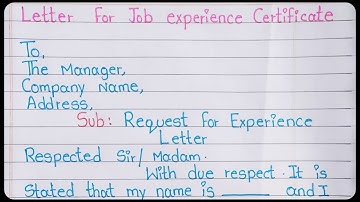 Letter For Job experience Certificate
To,
The Manager,
Company Name,
Address,
Sub: Request for Experience
Letter
Respected Sir/ Madam.
With due respect. It is
stated that my name is ______ and I